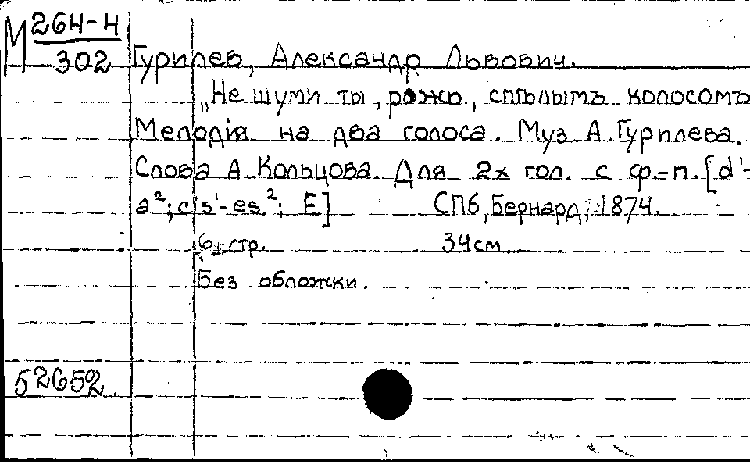 М 264-4
302
Гурилев, Александр Львович.
„Не шуми ты, рожь, спѣлымъ колосомъ
Мелодія на два голоса. Муз А. Гурилева.
Слова А. Кольцова. Для 2х гол. с ф.-п. [d¹-
a²; cis¹-es²; E] СПб, Бернард, 1874.
6 стр. 34 см
Без обложки.
52652